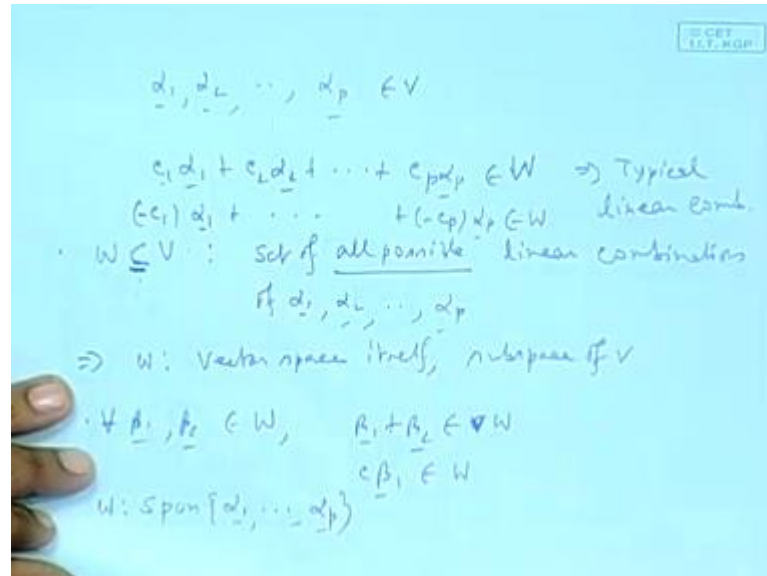 © CET
I.I.T. KGP
α₁, α₂, ‥, α_p ∈ V
c₁α₁ + c₂α₂ + ··· + c_pα_p ∈ W ⇒ Typical
linear comb.
(-c₁) α₁ + · · · + (-c_p) α_p ∈ W
· W ⊆ V : Set of all possible linear combinations
of α₁, α₂, ‥, α_p
⇒ W: Vector space itself, subspace of V
· ∀ β₁, β₂ ∈ W, β₁ + β₂ ∈ W
cβ₁ ∈ W
W: Span{α₁, ··· α_p}